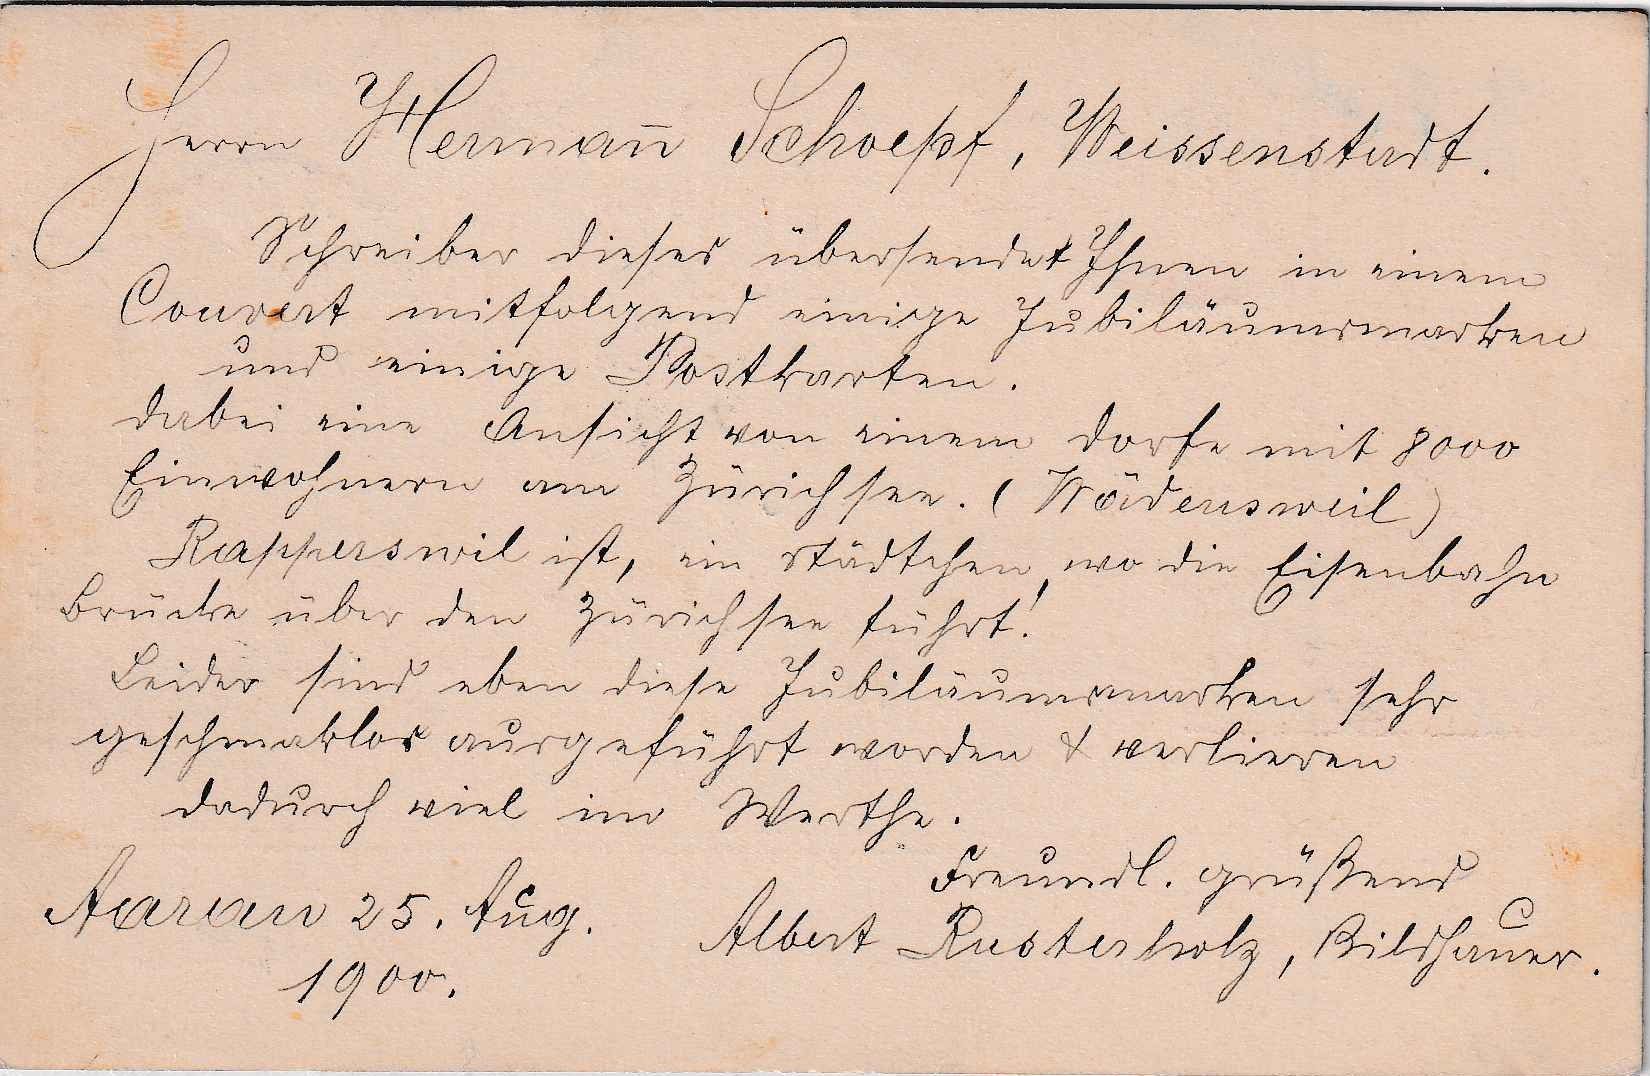 Herrn Hermann Schoepf, Weissenstadt.
Schreiber dieses übersendet Ihnen in einem
Couvert mitfolgend einige Jubiläumsmarken
und einige Postkarten.
Dabei eine Ansicht von einem Dorfe mit 8000
Einwohnern am Zürichsee. (Wädensweil)
Rapperswil ist, ein Städtchen, wo die Eisenbahn
Brücke über den Zürichsee führt!
Leider sind eben diese Jubiläumsmarken sehr
geschmaklos ausgeführt worden & verlieren
dadurch viel im Werthe.
Freundl. grüßend
Aarau 25. Aug. Albert Rusterholz, Bildhauer.
1900.